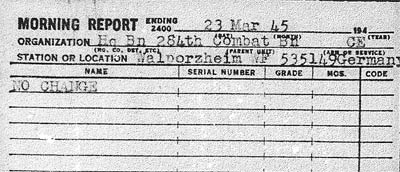 MORNING REPORT ENDING 2400 23 Mar 45 194
(DAY) (MONTH) (YEAR)
ORGANIZATION Hq Bn 284th Combat Bn CE
(HQ. CO. DET. ETC) (PARENT UNIT) (ARM OR SERVICE)
STATION OR LOCATION Walporzheim WF 535149Germany
NAME SERIAL NUMBER GRADE MOS. CODE
NO CHANGE